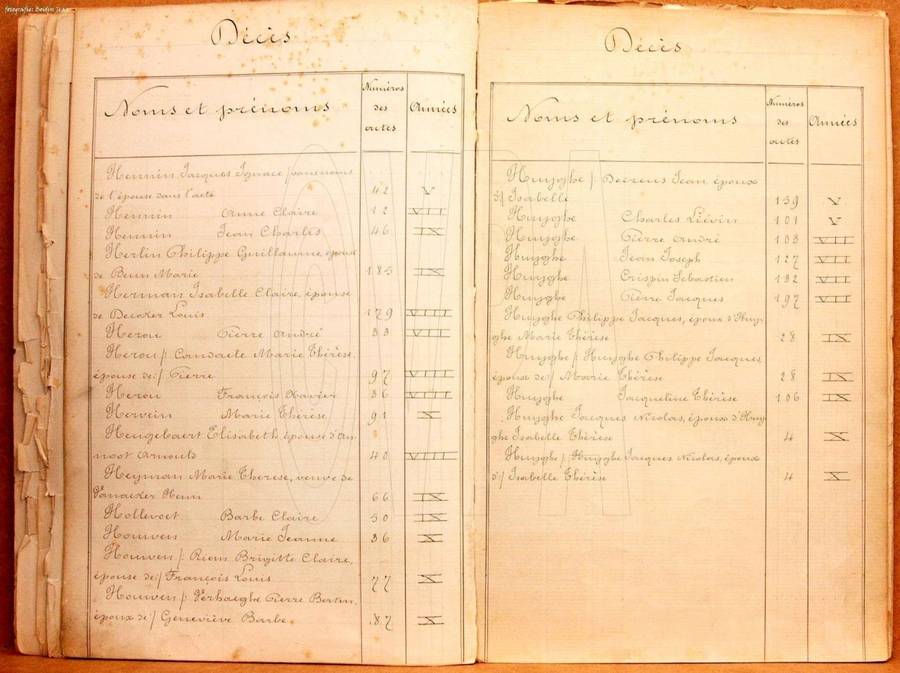 Décès
Noms et prénoms
Numéros
des
actes
Années
Hennin Jacques Ignace
de l'épouse dans l'acte 42 V
Hennin Anne Claire 12 VII
Hennin Jean Charles 46 IX
Herlin Philippe Guillaume, époux
de Beun Marie 183 IX
Herman Isabelle Claire, épouse
de Decoker Louis 179 VIII
Herou Pierre André 33 VIII
Herou /: Candaele Marie Thérèse,
épouse de:/ Pierre 97 VIII
Herou François Xavier 36 VIII
Hervein Marie Thérèse 91 X
Heugebaert Elisabeth, épouse d'Ar
noot Arnould 40 VIII
Heyman Marie Therese, veuve de
Henri 66 IX
Hollevoet Barbe Claire 50 IX
Houwen Marie Jeanne 36 X
Houwen /: Rion Brigitte Claire,
épouse de:/ François Louis 77 X
Houwen /: Verhaeghe Pierre Bertin,
époux de:/ Geneviève Barbe 87 X
Décès
Noms et prénoms
Numéros
des
actes
Années
Huyghe /: Jean, époux
d:/ Isabelle 159 V
Huyghe Charles Liévin 101 V
Huyghe Pierre André 103 VII
Huyghe Jean Joseph 127 VII
Huyghe Crispin Sébastien 132 VII
Huyghe Pierre Jacques 197 VII
Huyghe Philippe Jacques, époux d'Huy
ghe Marie Thérèse 28 IX
Huyghe /: Huyghe Philippe Jacques
époux de:/ Marie Thérèse 28 IX
Huyghe Jacqueline Thérèse 106 IX
Huyghe Jacques Nicolas, époux d'Huy
ghe Isabelle Thérèse 4 X
Huyghe /: Huyghe Jacques Nicolas, époux
d:/ Isabelle Thérèse 4 X